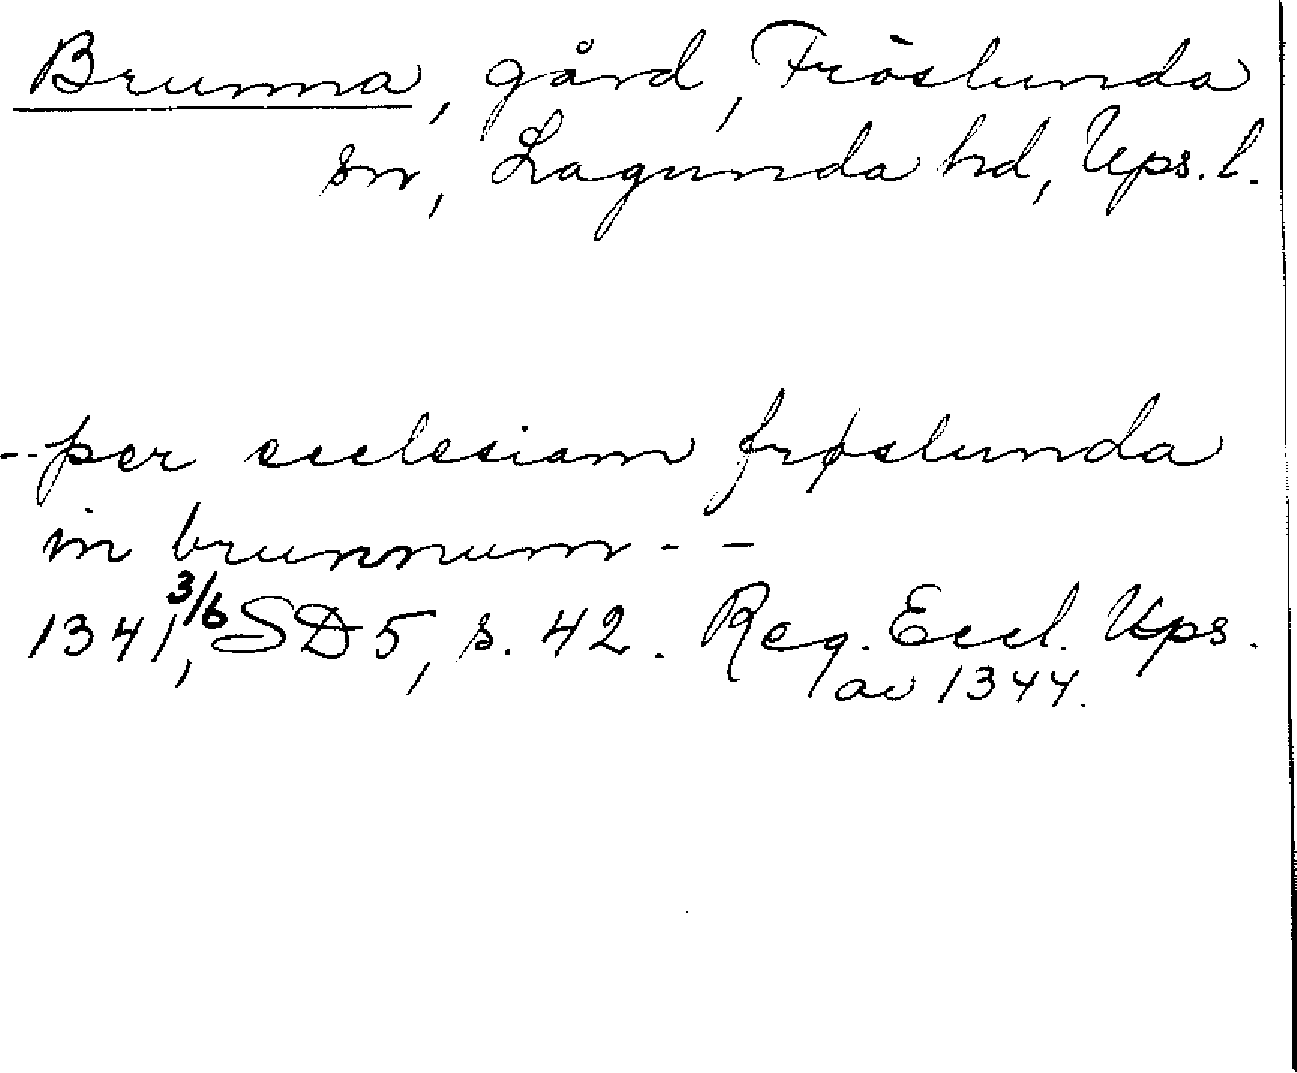 Brunna, gård, Fröslunda
sn, Lagunda hd, Ups. l.
-- per ecclesiam frøslunda
in brunnum - -
1341, 3/6 SD 5, s. 42. Reg. Eccl. Ups.
av 1344.